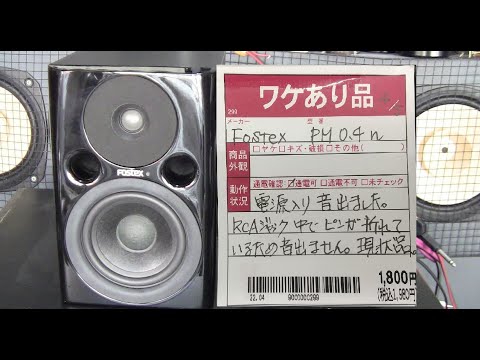 FOSTEX
ワケあり品
299
メーカー 型番
FOSTEX PM0.4n
商品外観 □ヤケ□キズ・破損□その他( )
動作状況 通電確認 ☑通電可 □通電不可 □未チェック
電源入り音出ました。
RCAジャック中でピンが折れて
いるため音出ません。現状品。
1,800円
(税込1,980円)
22.04 9000000299